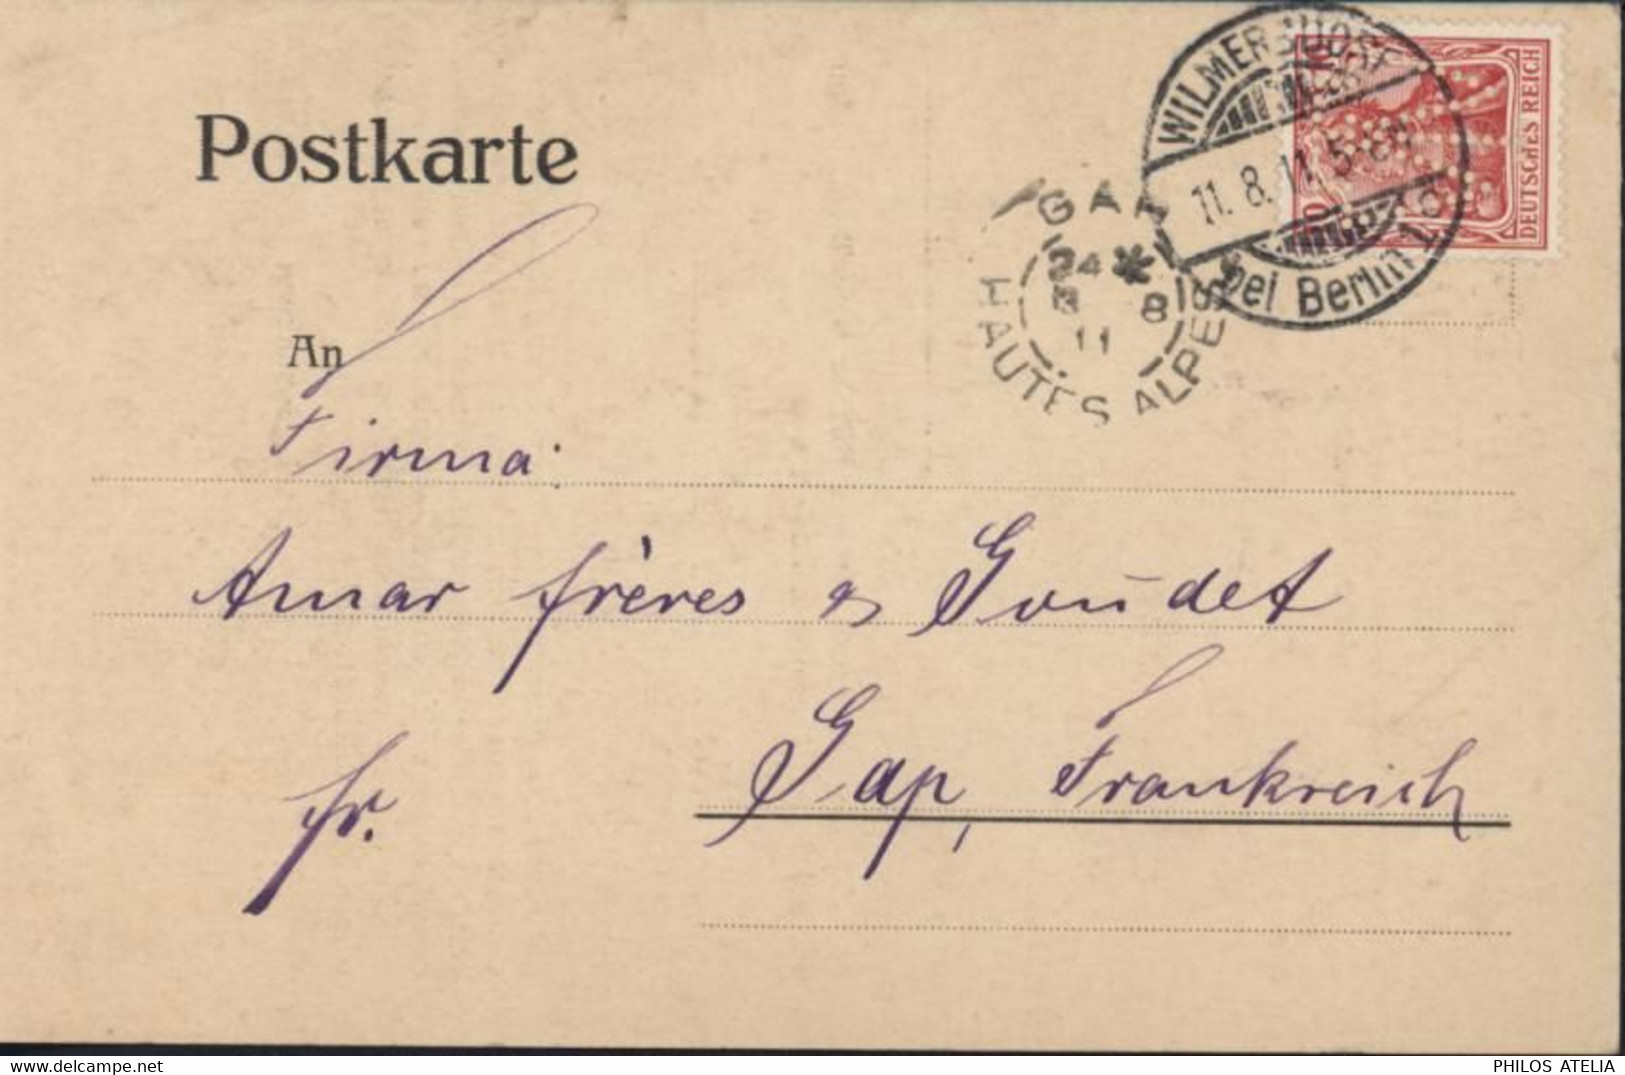 WILMERSDORF
bei Berlin 1 d
11. 8. 11. 5-6N
10
DEUTSCHES REICH
Postkarte
GAP
HAUTES ALPES
8
11
An
Firma
Amar frères & Goudet
Gap, Frankreich
fr.
PHILOS ATELIA